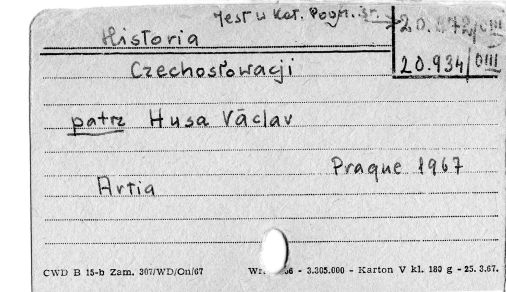 Jest w Kat.
Historia
20.934/OIII
Czechosłowacji
patrz Husa Václav
Praque 1967
Artia
CWD B 15-b Zam. 307/WD/On/67 66 - 3.305.000 - Karton V kl. 180 g - 25. 3.67.